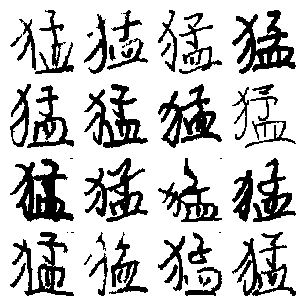 猛猛猛猛
猛猛猛猛
猛猛猛猛
猛猛猛猛